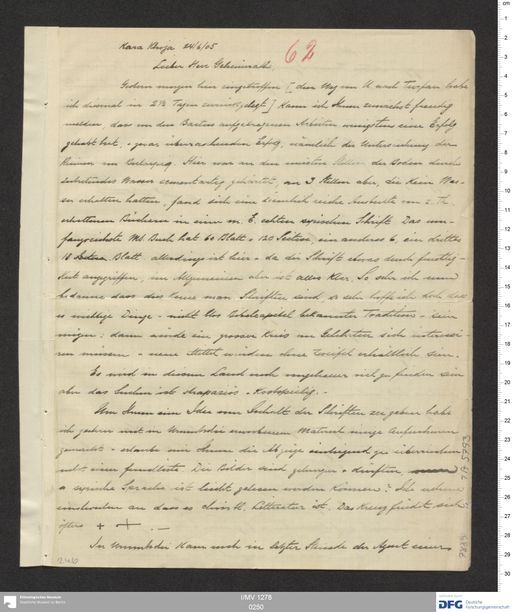 Kara Khoja 24/6/05
62
Lieber Herr Geheimrath
Gestern morgen hier eingetroffen [den Weg von U. nach Turfan habe
ich diesmal in 2½ Tagen zurückgelegt] kann ich Ihnen zunächst freudig
melden, dass von den Bartus aufgetragenen Arbeiten wenigstens eine Erfolg
gehabt hat, & zwar überraschenden Erfolg, nämlich die Untersuchung der
Ruinen im Hier war an den meisten Stellen der Boden durch
Wasser cementartig gehärtet, an 3 Stellen aber, die kein Was-
ser erhalten hatten, fand sich eine ziemlich reiche Ausbeute von z. Th.
erhaltenen Büchern in einer m. E. echten syrischen Schrift. Das um-
fangreichste Ms. Buch hat 60 Blatt = 120 Seiten, ein anderes 6, ein drittes
18 Blatt allerdings ist hier & da die Schrift etwas durch Feuchtig-
keit angegriffen, im Allgemeinen aber ist alles klar. So sehr ich nun
bedauere dass dies keine man. Schriften sind, so sehr hoffe ich doch dass
es wichtige Dinge - nicht blos Bibelkapitel bekannter Tradition - sein
mögen: dann würde ein grosser Kreis von Gelehrten sich interessi-
ren müssen & neue Mittel würden ohne Zweifel erhältlich sein.
Es wird in diesem Land noch ungeheuer viel zu finden sein
aber das Suchen ist strapaziös & kostspielig.
Um Ihnen eine Idee vom Inhalt der Schriften zu geben habe
ich gestern mit in Urumtschi erworbenem Material einige Aufnahmen
gemacht & erlaube mir Ihnen die Abzüge zu überreichen
nebst einer Fundliste. Die Bilder sind gelungen & dürften
syrische Sprache ist leicht gelesen werden können? Ich nehme
einstweilen an dass es christl. Litteratur ist. Das Kreuz findet sich
öfters + + . —
In Urumtshi kam noch in letzter Stunde der Agent eines
TA 5793
I/MV 1278
0250
Ethnologisches Museum
Staatliche Museen zu Berlin
DFG
Deutsche
Forschungsgemeinschaft